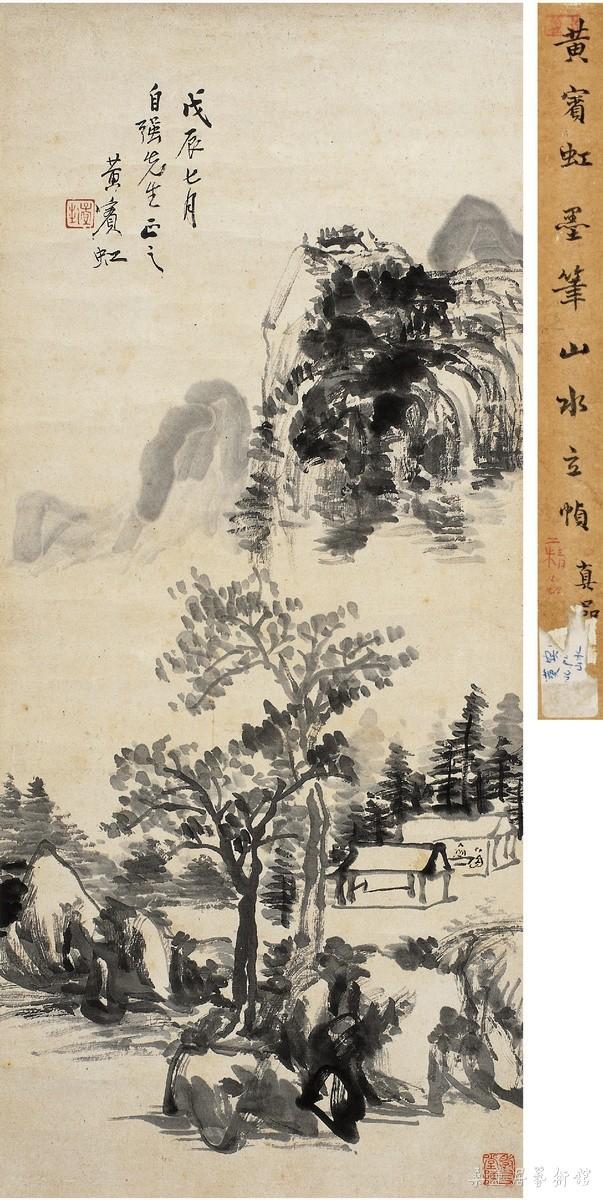 戊辰七月
自强先生正之
黄賓虹
黃賓虹墨筆山水立幀真品
山水
藝術館